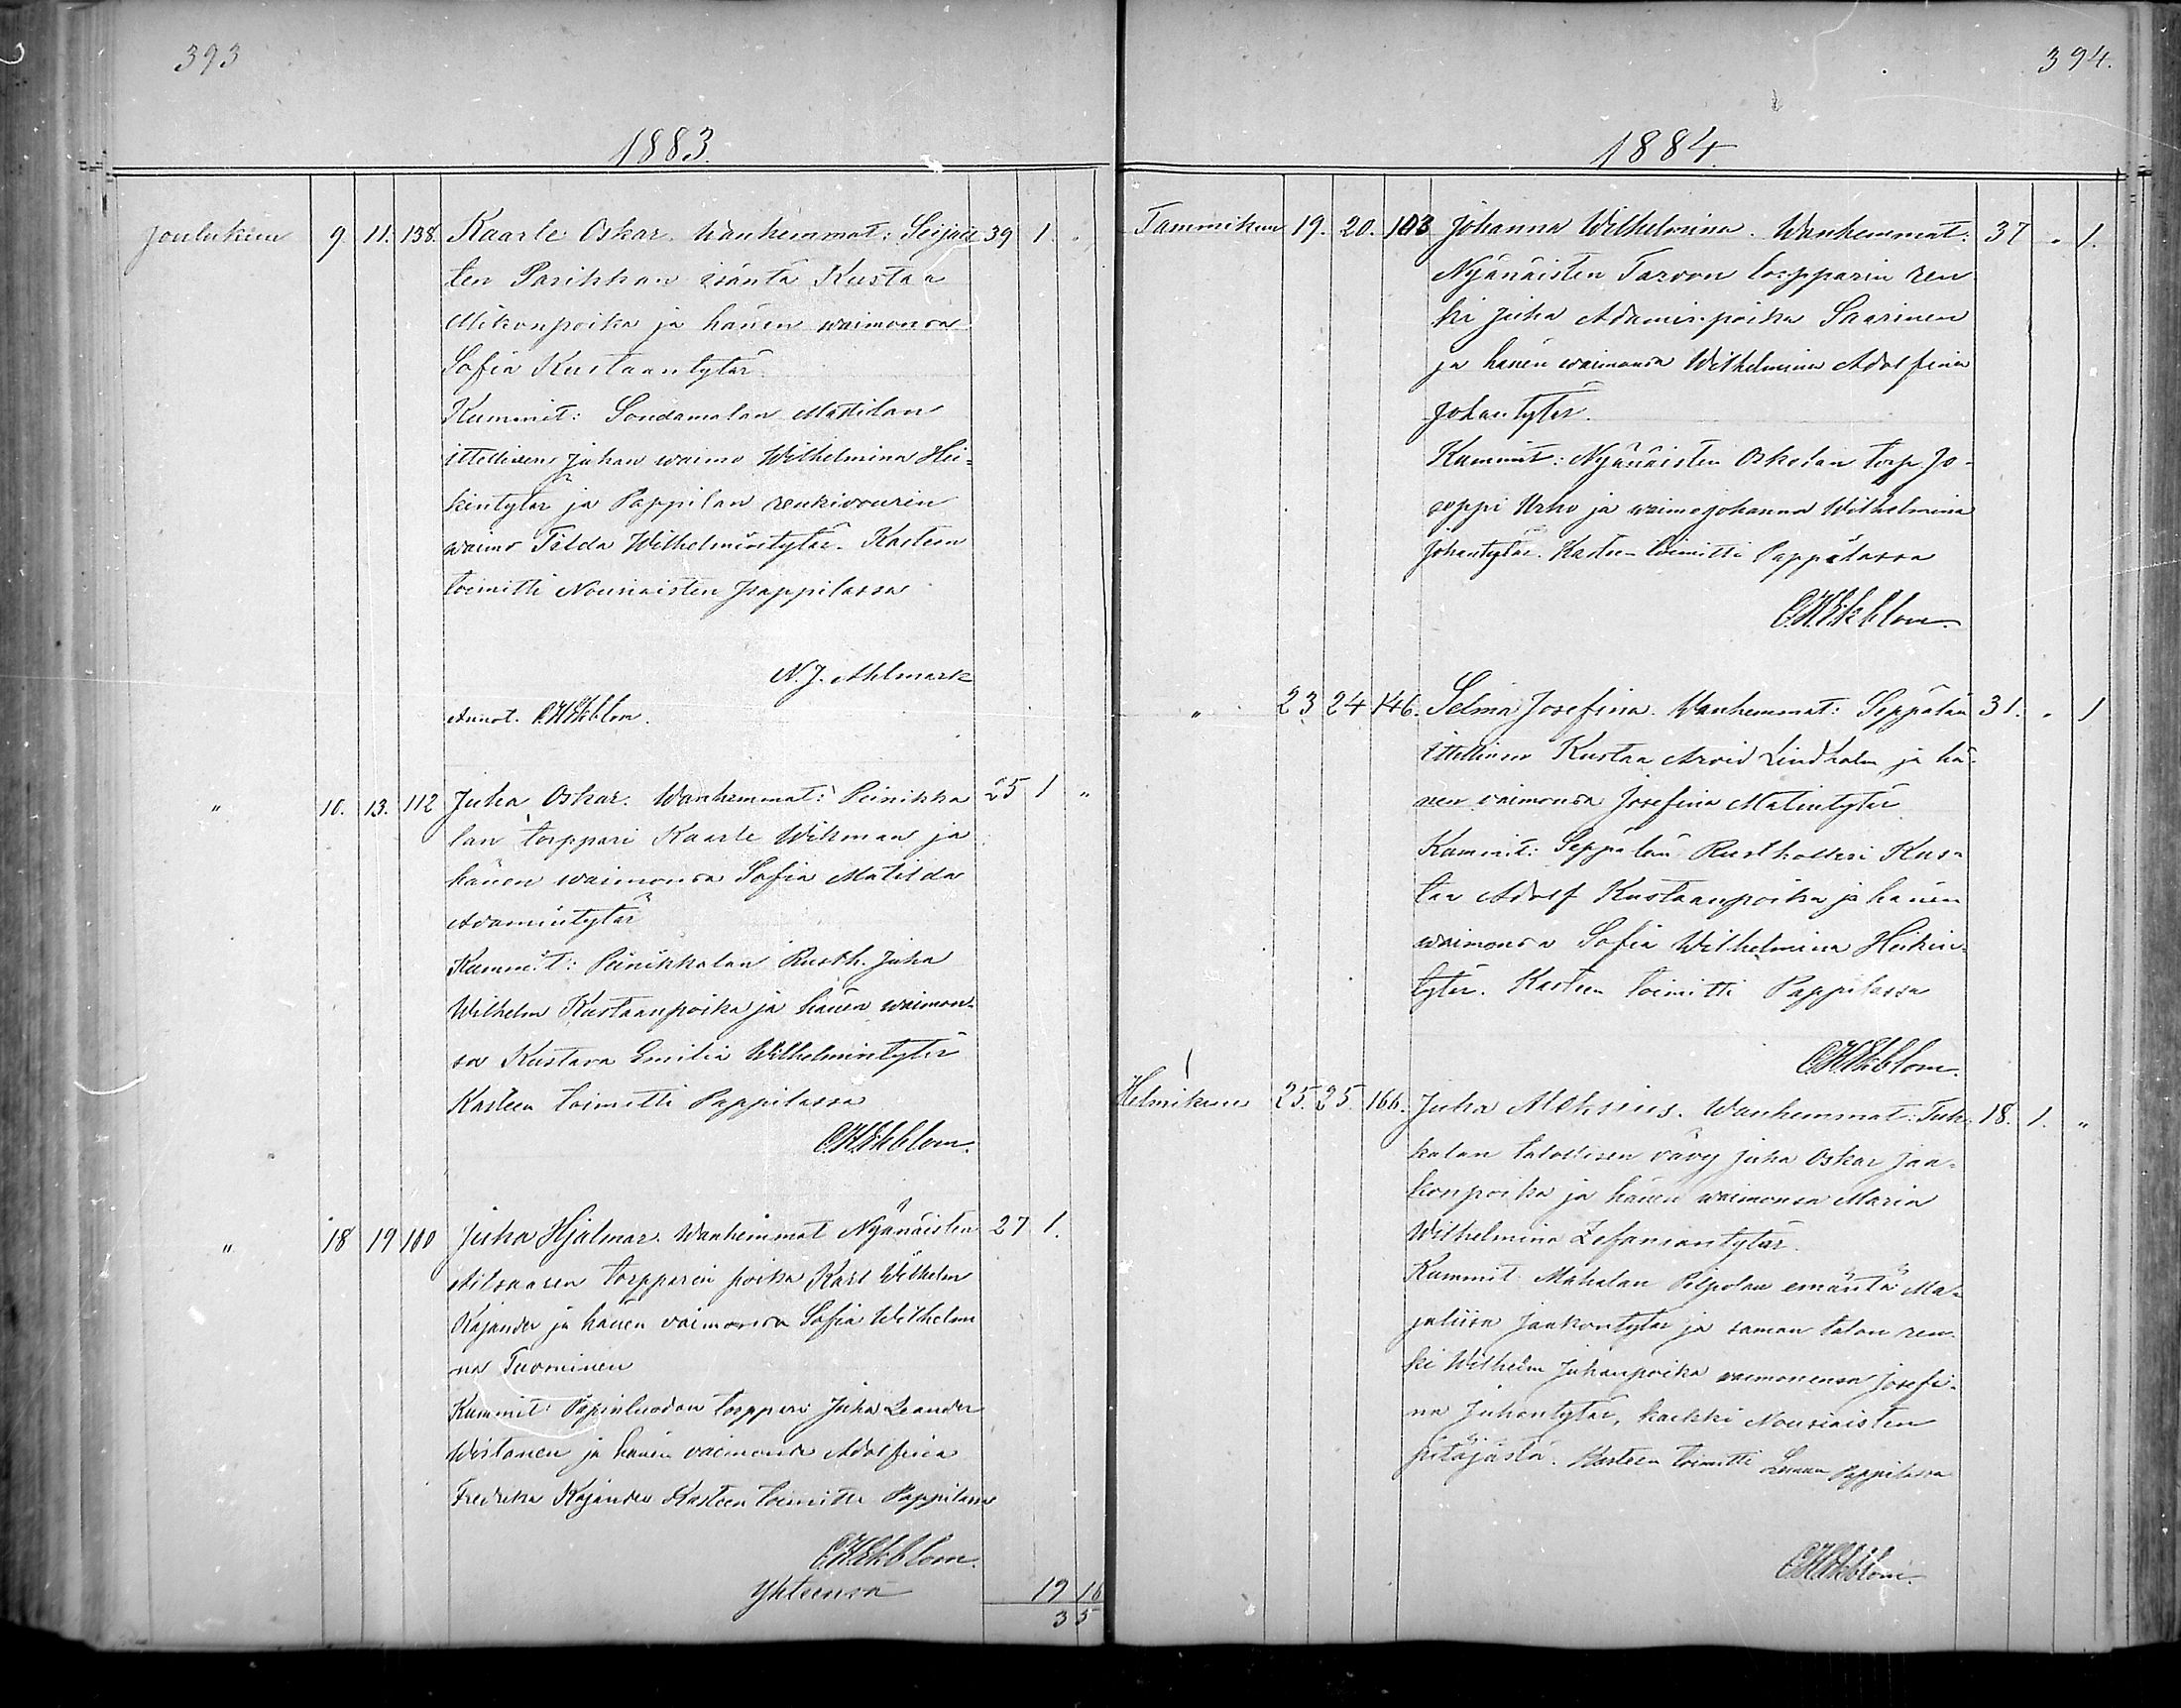 393
1883.
Joulukuu 9. 11. 138. Kaarle Oskar. Wanhemmat: Seijais 39 1. "
ten Parikkan isäntä Kustaa
Mikonpoika ja hänen waimonsa
Sofia Kustaantytär.
Kummit: Soudamalan Mattilan
ittellisen Juhan waimo Wilhelmina Hei=
kintytär ja Pappilan renkivourin
waimo Tilda Wilhelmintytär. Kasteen
toimitti Nousiaisten Pappilassa
N. J. Ahlmark
Annot. C.H.Ekblom.
" 10. 13. 112 Juha Oskar. Wanhemmat: Peinikka 25 1 "
lan torppari Kaarle Wikman ja
hänen waimonsa Sofia Matilda
Adamintytär
Kummit: Peinikkalan Rusth. Juha
Wilhelm Kustaanpoika ja hänen waimon-
sa Kustava Emilia Wilhelmintytär
Kasteen toimitti Pappilassa
C.H.Ekblom.
" 18 19 100 Juha Hjalmar. Wanhemmat Nyänäisten 27 1.
torpparin poika Karl Wilhelm
Kajander ja hänen vaimonsa Sofia Wilhelmi
na Tuominen
Kummit: torppari Juha Leander
Wistanen ja hänen vaimonsa Adolfina
Fredrika Kajander Kasteen toimitti Pappilassa
C.H.Ekblom.
Yhteensä 19 16
35
394.
1884.
Tammikuu 19. 20. 103 Johanna Wilhelmina. Wanhemmat: 37 " 1.
Nyänäisten Tarvon torpparin ren
ki Juha Adaminpoika Saarinen
ja hänen waimonsa Wilhelmina Adolfina
Johantytär.
Kummit: Nyänäisten Oskolan torp. Jo-
seppi Urho ja waimo Johanna Wilhelmina
Johantytär. Kasteen toimitti Pappilassa
C.H.Ekblom.
" 23 24 146. Selma Josefina. Wanhemmat: Seppälän 31. " 1
ittellinen Kustaa Arvid Lindholm ja hä-
nen vaimonsa Josefina Matintytär
Kummit: Seppälän Rusthollari Kus=
taa Adolf Kustaanpoika ja hänen
waimonsa Sofia Wilhelmina Heikin=
tytär. Kasteen toimitti Pappilassa
C.H.Ekblom.
Helmikuu 25. 25. 166. Juha Aleksius. Wanhemmat: Tuk- 18. 1. "
kalan talollisen vävy Juha Oskar Jaa-
konpoika ja hänen waimonsa Maria
Wilhelmina Zefaniantytär.
Kummit: Mahalan Pilpolan emäntä Ma-
jaliisa Jaakontytär ja saman talon ren-
ki Wilhelm Juhanpoika waimonensa Josefi-
na Juhontytär, kaikki Nousiaisten
pitäjästä. Kasteen toimitti Lemun Pappilassa
C.H.Ekblom.